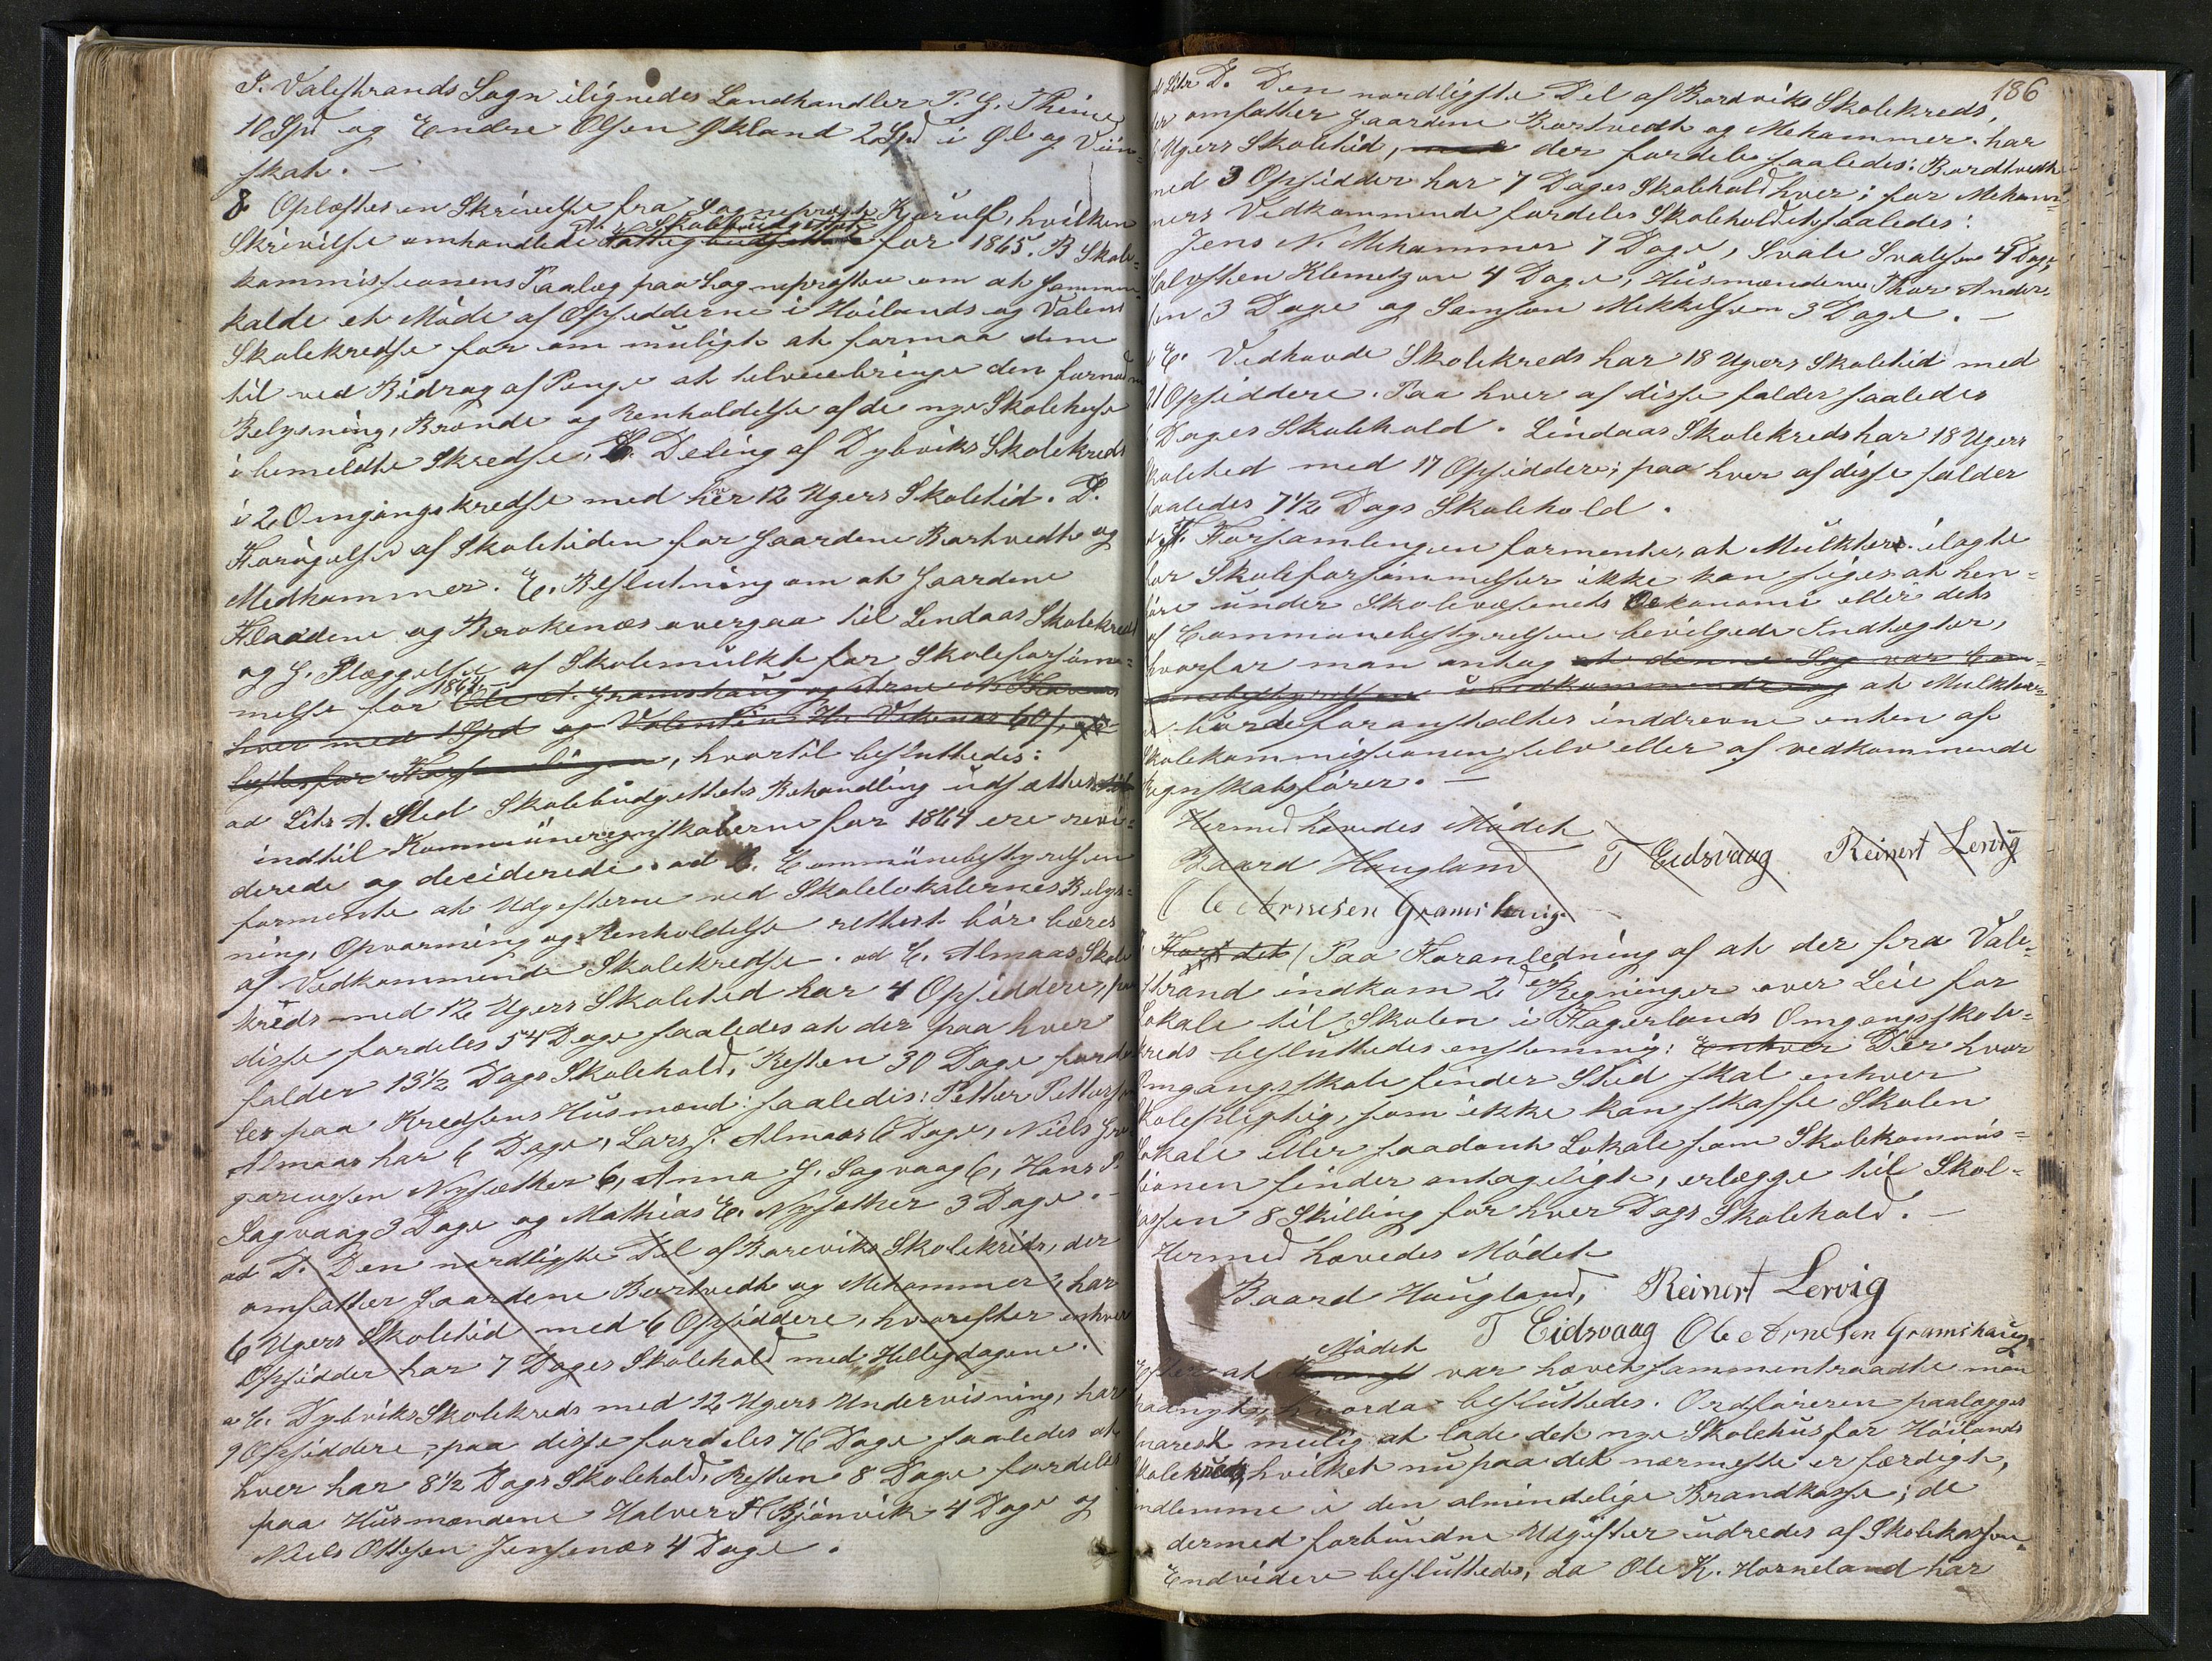 I. Valestrands Sogn ilignedes Landhandler P. G. Theiner
10 Spd og Endre Olsen Økland 2 Spd i Øl og Viin-
skat. -
8 Oplæstes en Skrivelse fra Sogneprest Kjerulf, hvilken
A. Skolebudgettet
Skrivelse omhandlede Fattigbudgettet for 1865. B Skole-
kommissionens Paalæg paa Sognepresten om at sammen-
kalde et Møde af Opsidderne i Høilands og Valens
Skolekredse for om muligt at formaa dem
til ved Bidrag af Penge at tilveiebringe den fornødne
Belysning, Brænde og Renholdelse af de nye Skolehuse
i bemeldte Skredse. C. Deling af Dybviks Skolekreds
i 2 Omgangskredse med hver 12 Ugers Skoletid. D.
Forøgelse af Skoletiden for Gaardene Bortvedt og
Medhammer. E. Beslutning om at Gaardene
Flaadene og Brokenæs overgaa til Lindaas Skolekreds
og G. Ilæggelse af Skolemulkt for Skoleforsøm-
1864. -
melse for Ole A. Gramshaug og Arne N. Hovnes
hver med 1 Spd og Valentin H. Vikenæs 60 s, op-
læstes for Forsamlingen, hvortil besluttedes:
ad Litr A. Med Skolebudgettets Behandling udsættes
indtil Kommuneregnskaberne for 1864 ere revi-
derede og deciderede. ad B. Communebestyrelsen
formente at Udgifterne ved Skolelokalernes Belys-
ning, Opvarming og Renholdelse rettest bør bæres
af Vedkommende Skolekredse. ad C. Almaas Skole
kreds med 12 Ugers Skoletid har 4 Opsiddere, paa
disse fordeles 54 Dage saaledes at der paa hver
falder 13½ Dags Skolehold, Resten 30 Dage forde
les paa Kredsens Husmænd: saaledes: Petter Petters
Almaas har 6 Dage, Lars J. Almaas 6 Dage, Niels Gre
gariussen Nysæther 6, Anna J. Sagvaag 6, Hans P.
Sagvaag 3 Dage og Mathias E. Nysæther 3 Dage. -
ad D. Den nordligste Del af Boreviks Skolekreds, der
omfatter Gaardene Bortvedt og Mehammer, har
6 Ugers Skoletid med 6 Opsiddere, hvorefter enhver
Opsidder har 7 Dages Skolehold med Helligdagene.
a C. Dybviks Skolekreds med 12 Ugers Undervisning, har
9 Opsiddere, paa disse fordeles 76 Dage saaledes at
hver har 8½ Dags Skolehold, Resten 8 Dage fordeles
paa Husmændene Halver H Bjønvik 4 Dage og
Niels Ottesen Jensenæs 4 Dage.
186
d Litr D. Den nordligste Del af Bordviks Skolekreds,
der omfatter Gaardene Bortvedt og Mehammer. har
6 Ugers Skoletid, med der fordeles saaledes: Bordtvedt
med 3 Opsidder har 7 Dages Skolehold hver; for Meham-
mers Vedkommende fordeles Skoleholdet saaledes:
Jens N. Mehammer 7 Dage, Svale Svalesen 4 Dage,
Halvsten Klemetsen 4 Dage, Husmændene Thor Ander-
sen 3 Dage og Samson Mikkelsen 3 Dage. -
d E. Vedhovde Skolekreds har 18 Ugers Skoletid med
21 Opsiddere. Paa hver af disse falder saaledes
6 Dages Skolehold. Lindaas Skolekreds har 18 Ugers
Skoletid med 17 Opsiddere; paa hver af disse falder
saaledes 7½ Dags Skolehold.
Forsamlingen formente, at Mulkter ilagte
for Skoleforsømmelser ikke kan siges at hen-
føre under Skolevæsenets Oekonomi eller dets
af Communebestyrelsen bevilgede Indtægter,
hvorfor man antog at denne Sag var Com-
munebestyrelsen uvedkommende og at Mulkter-
ne burde foranstaltes inddrevne enten af
Skolekommissionen selv eller af vedkommende
Regnskabsfører. -
Hermed hævedes Mødet
Baard Haugland T Eidsvaag Reinert Lervig
Ole Arnesen Gramshaug.
Paa Foranledning af at der fra Vale-
strand indkom 2de Regninger over Leie for
Lokale til Skolen i Fagerlands Omgangsskole-
kreds besluttedes enstemmig: Enhver Der hvor
Omgangsskole finder Sted skal enhver
Skolepligtig, som ikke kan skaffe Skolen
Lokale eller saadant Lokale som Skolekommis-
sionen finder antageligt, erlægge til Skol-
kassen 8 Skilling for hver Dags Skolehold. -
Hermed hævedes Mødet
Baard Haugland, Reinert Lervig
T Eidsvaag Ole Arnesen Gramshaug
Mødet
Efter at var hævet sammentraadte man
paanyt, hvorda besluttedes. Ordføreren paalægges
snarest mulig at lade det nye Skolehus for Høilands
Skolekreds, hvilket nu paa det nærmeste er færdigt,
indlemme i den almindelige Brandkasse; de
dermed forbundne Udgifter udredes af Skolekassen.
Endvidere besluttedes, da Ole K. Horneland har